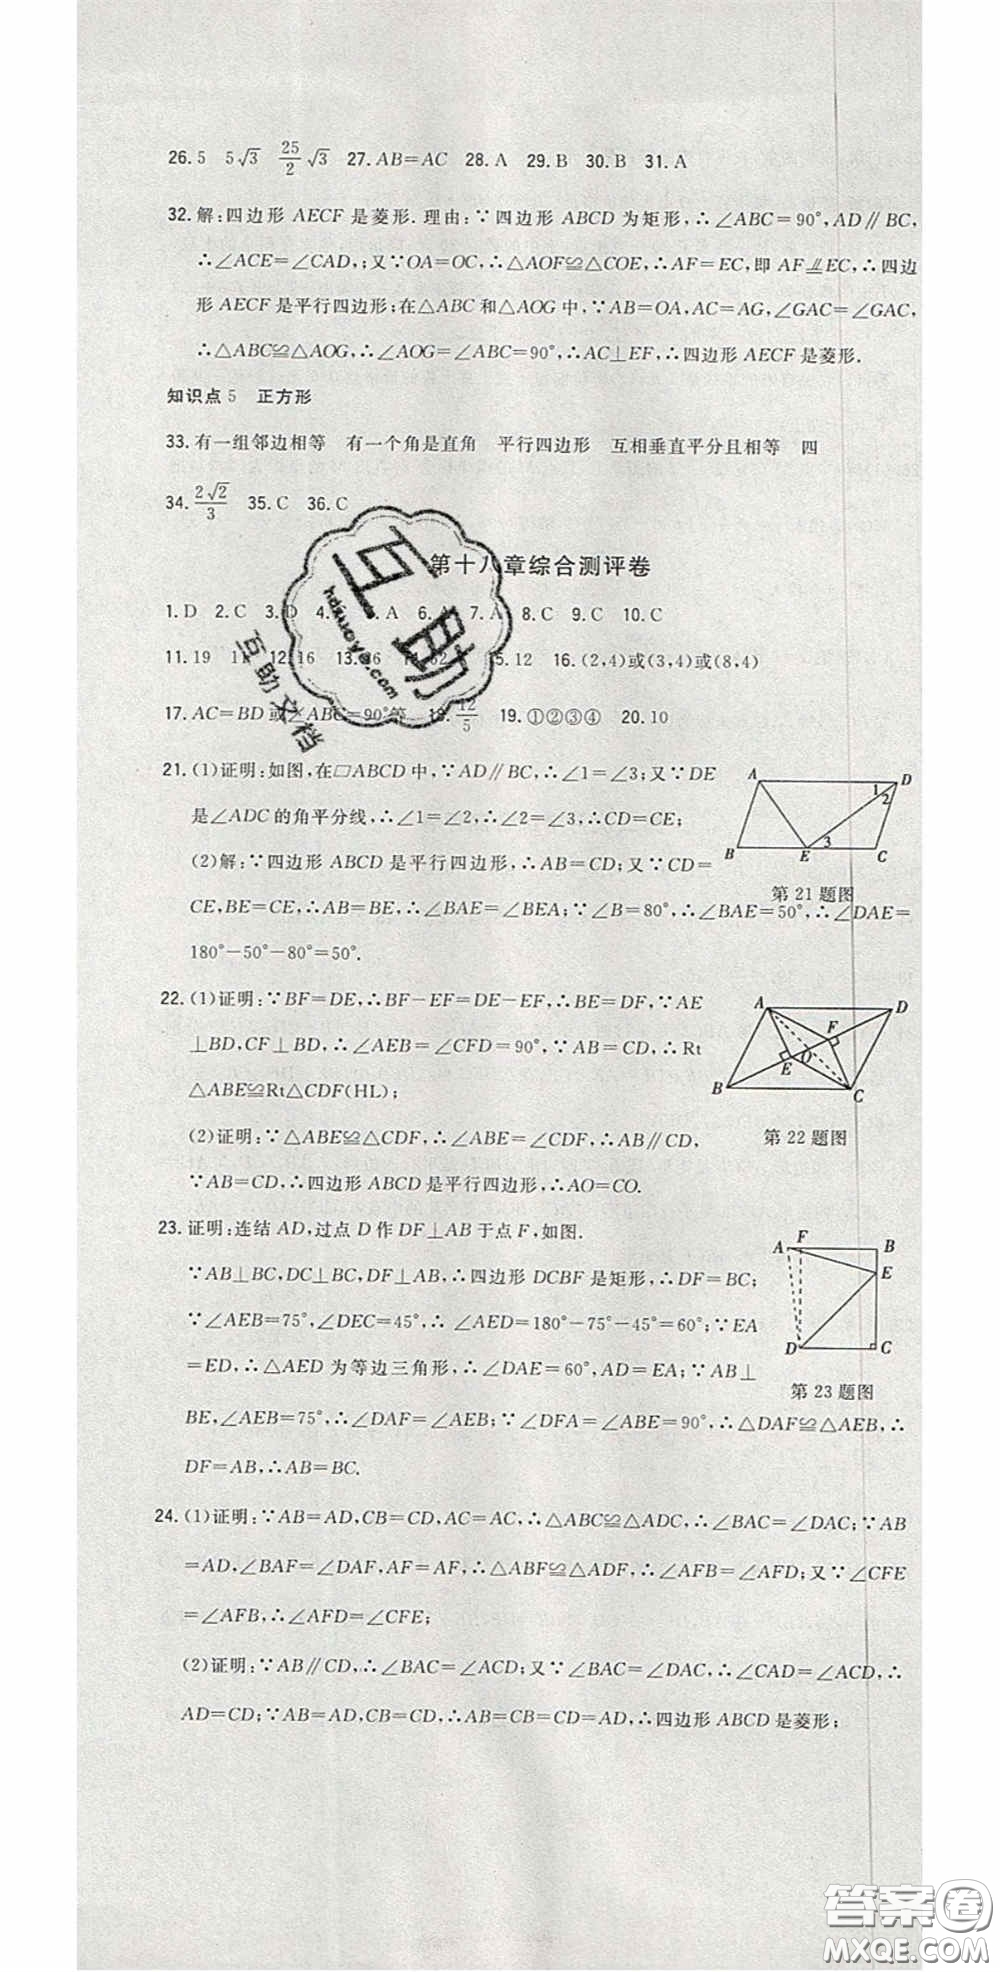 26. 5　5√3　25/2 √3　27. AB=AC　28. A　29. B　30. B　31. A
32. 解:四边形 AECF 是菱形. 理由:∵四边形 ABCD 为矩形,∴∠ABC=90°,AD∥BC,
∴∠ACE=∠CAD,;又∵OA=OC,∴△AOF≌△COE,∴AF=EC,即 AF∥EC,∴四边
形 AECF 是平行四边形;在△ABC 和△AOG 中,∵AB=OA,AC=AG,∠GAC=∠GAC,
∴△ABC≌△AOG,∴∠AOG=∠ABC=90°,∴AC⊥EF,∴四边形 AECF 是菱形.
知识点 5　正方形
33. 有一组邻边相等　有一个角是直角　平行四边形　互相垂直平分且相等　四
34. 2√2/3　35. C　36. C
第十八章综合测评卷
1. D　2. C　3. D　4.　A　6. A　7. A　8. C　9. C　10. C
11. 19　12. 16　13.　15. 12　16. (2,4)或(3,4)或(8,4)
17. AC=BD 或∠ABC=90°等　18. 12/5　19. ①②③④　20. 10
21. (1)证明:如图,在▱ABCD 中,∵AD∥BC,∴∠1=∠3;又∵DE
是∠ADC 的角平分线,∴∠1=∠2,∴∠2=∠3,∴CD=CE;
(2)解:∵四边形 ABCD 是平行四边形,∴AB=CD;又∵CD=
CE,BE=CE,∴AB=BE,∴∠BAE=∠BEA;∵∠B=80°,∴∠BAE=50°,∴∠DAE=
180°-50°-80°=50°.
A D 1 2 3 B E C
第 21 题图
22. (1)证明:∵BF=DE,∴BF-EF=DE-EF,∴BE=DF,∵AE
⊥BD,CF⊥BD,∴∠AEB=∠CFD=90°,∵AB=CD,∴Rt
△ABE≌Rt△CDF(HL);
(2)证明:∵△ABE≌△CDF,∴∠ABE=∠CDF,∴AB∥CD,
∵AB=CD,∴四边形 ABCD 是平行四边形,∴AO=CO.
A D F O E B C
第 22 题图
23. 证明:连结 AD,过点 D 作 DF⊥AB 于点 F,如图.
∵AB⊥BC,DC⊥BC,DF⊥AB,∴四边形 DCBF 是矩形,∴DF=BC;
∵∠AEB=75°,∠DEC=45°,∴ ∠AED=180°-75°-45°=60°;∵EA
=ED,∴△AED 为等边三角形,∴∠DAE=60°,AD=EA;∵AB⊥
BE,∠AEB=75°,∴∠DAF=∠AEB;∵∠DFA=∠ABE=90°,∴△DAF≌△AEB,∴
DF=AB,∴AB=BC.
A F B E D C
第 23 题图
24. (1)证明:∵AB=AD,CB=CD,AC=AC,∴△ABC≌△ADC,∴∠BAC=∠DAC;∵AB
=AD,∠BAF=∠DAF,AF=AF,∴△ABF≌△ADF,∴∠AFB=∠AFD;又∵∠CFE
=∠AFB,∴∠AFD=∠CFE;
(2)证明:∵AB∥CD,∴∠BAC=∠ACD;又∵∠BAC=∠DAC,∴∠CAD=∠ACD,∴
AD=CD;∵AB=AD,CB=CD,∴AB=CB=CD=AD,∴四边形 ABCD 是菱形;
互助
hdzuoye.com
互助文档
答案卷
MXQE.COM